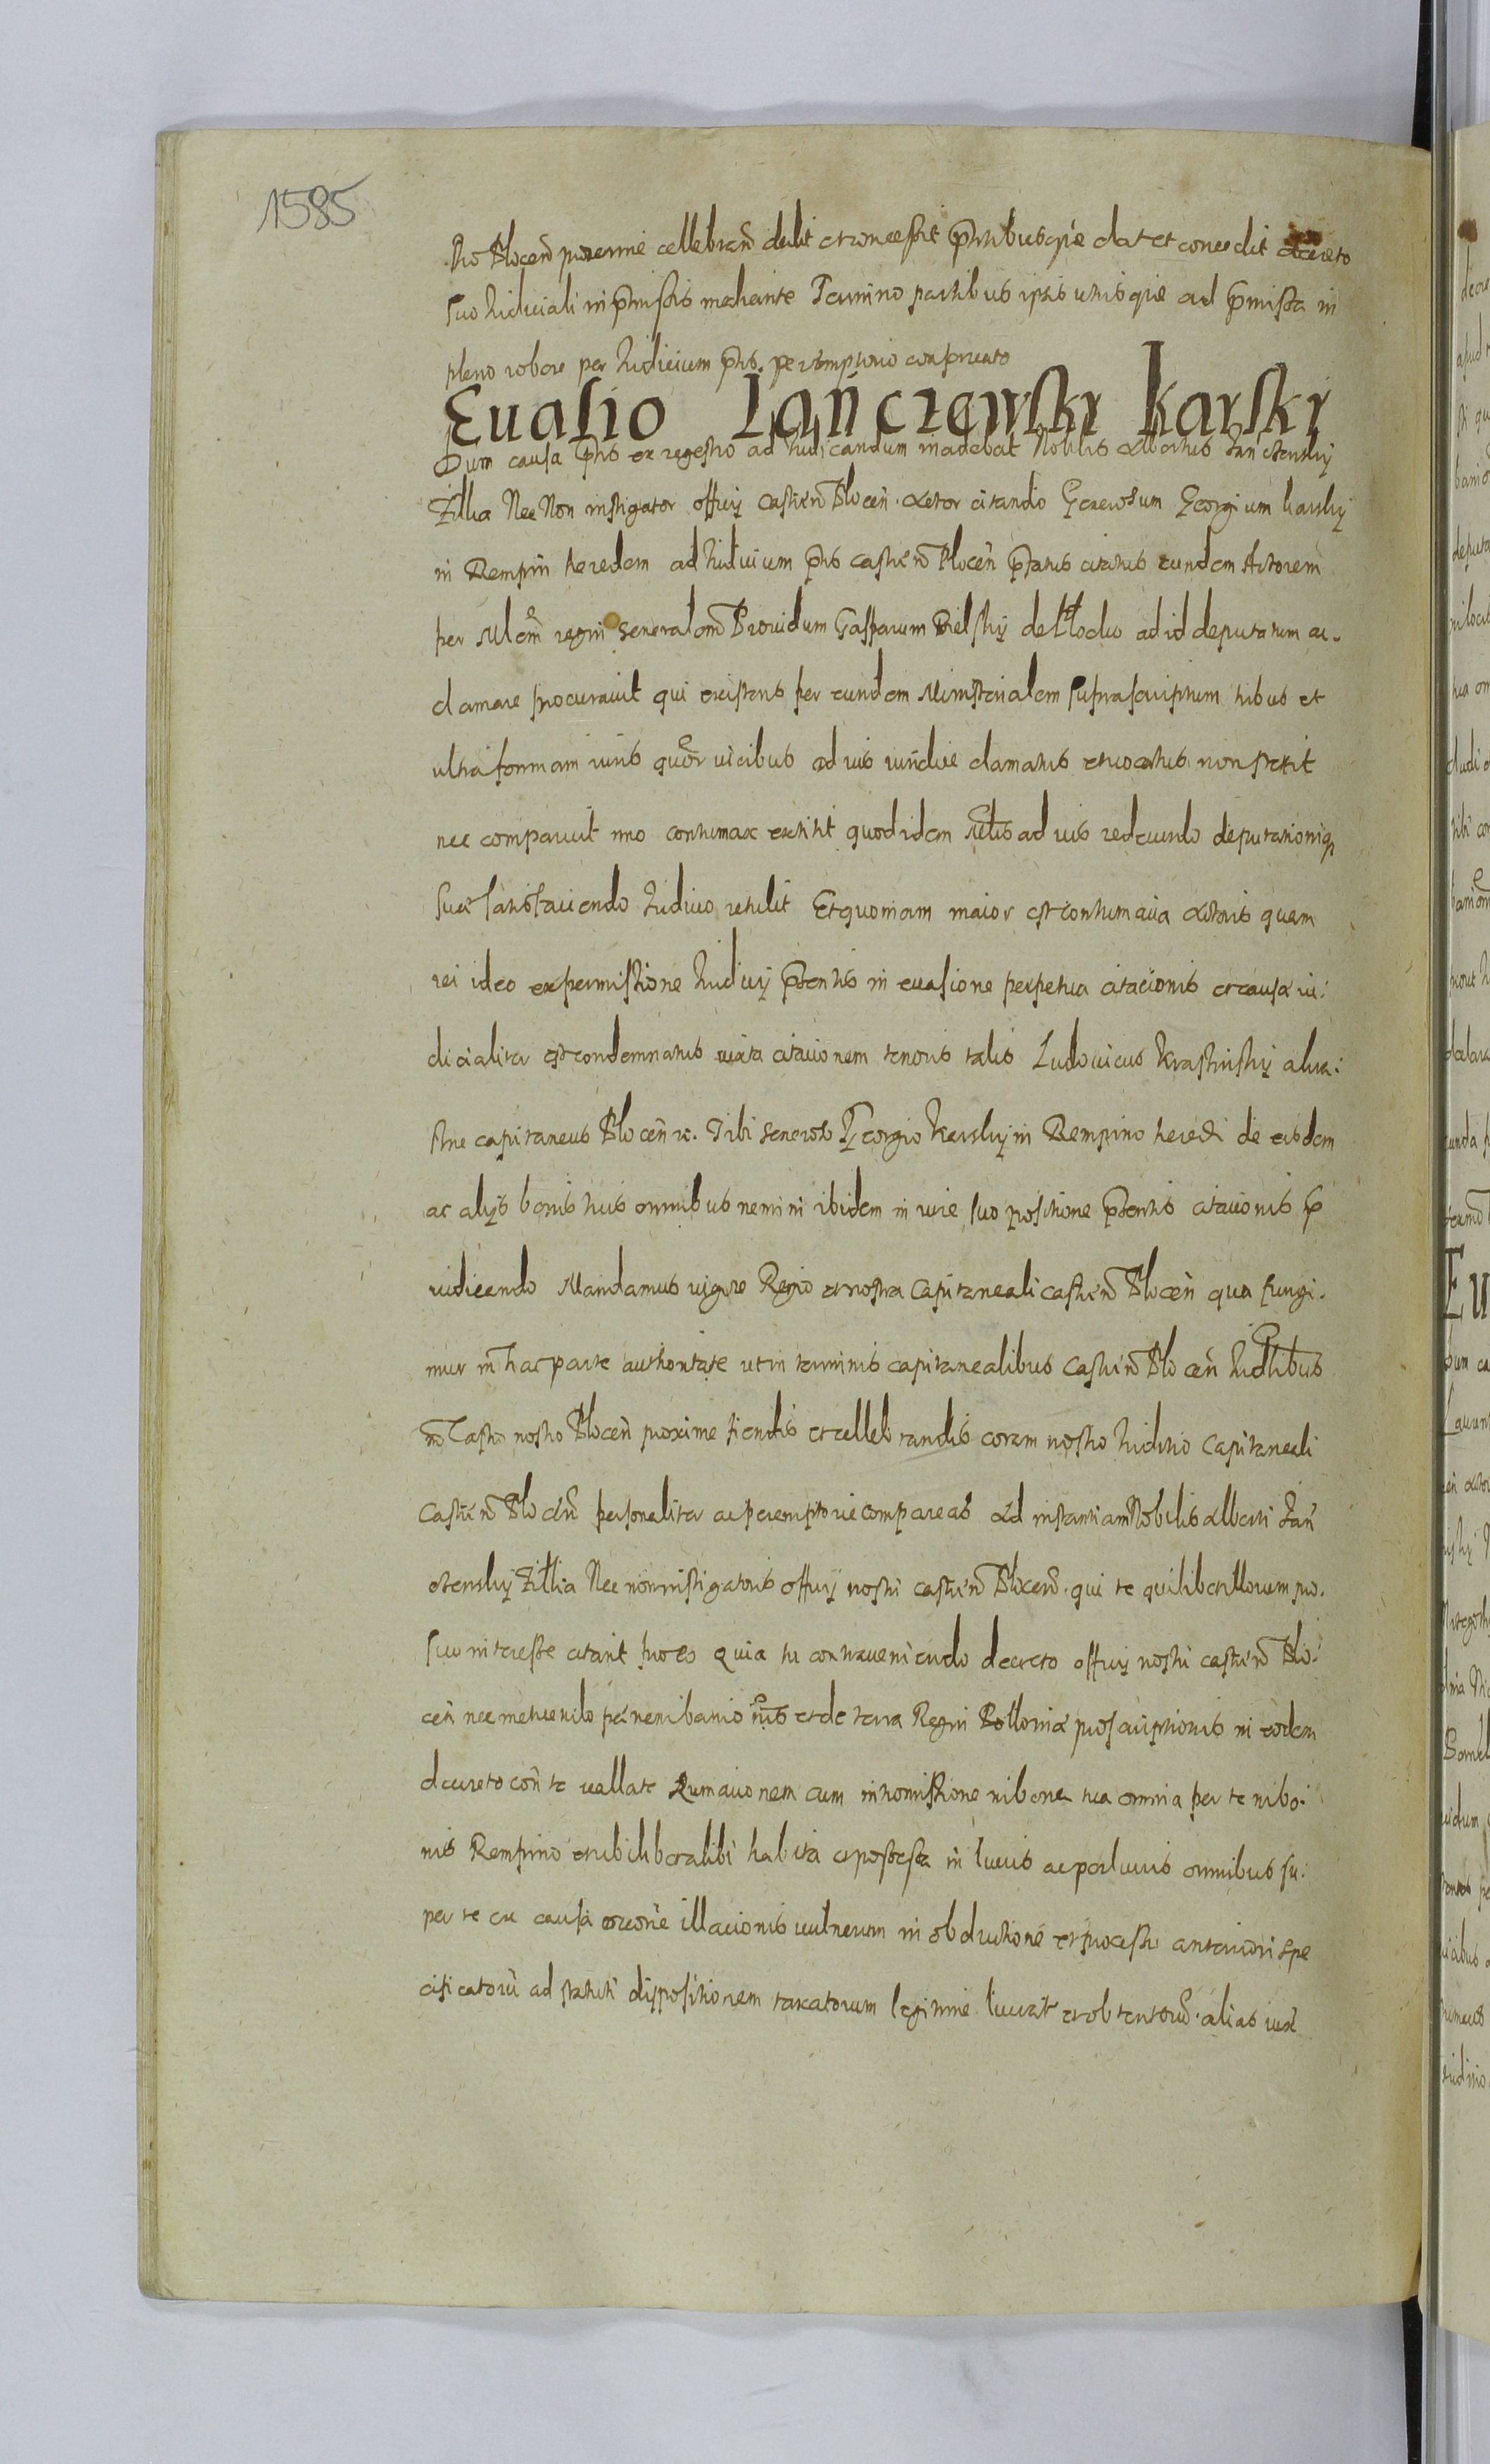 1585
stro Plocen̄ proxime cellebran̄ dedit et concessit p̄ntibusqúe dat et concedit decreto
suo Iudiciali in p̄missis mediante Termino partibus ipsis utrisqúe ad p̄missa in
pleno robore per Iudicium p̄ns. peremptorio conseruato
Euasio Lańczewski Karski
Dum causa p̄ns ex regestro ad Iudicandum inadebat Nobilis Albertus Lań czenskij
Zillia Nec Non instigator officij castren̄ Plocen̄. Actor citando Generosum Georgium Karskij
in Rempin heredem ad Iudicium p̄ns castren̄ Plocen̄ citatus eundem Actorem
per M̄lem regni Generalem Prouidum Gasparum Bielskij de Plocko ad id deputatum ac-
clamare procurauit qui existens per eundem Ministerialem suprascriptum tribus et
ultra formam iuris quor̄ uicibus ad ius iurídice clamatus et uocatus non stetit
nec comparuit imo contumax extitit quod idem M̄lis ad ius redeundo deputationiq
suæ satisfaciendo Iudicio retulit Et quoniam maior est contumacia Actoris quam
rei ideo ex permissione Iudicij p̄sentis in euasione perpetua citacionis et causæ iu-
dicialiter est condemnatus iuxta citacionem tenoris talis Ludouicus Krassinskij alias
capitaneus Plocen̄ rc. Tibi Generoso Georgio Karskij in Rempino heredi de eisdem
ac alijs bonis tuis omnibus nemini ibidem in iure suo positione p̄sentis citacionis p̄
iudicando Mandamus uigore Regio et nostra Capitaneali castren̄ Plocen̄ qua fungi-
mur in hac parte authoritate ut in terminis capitanealibus castren̄ Plocen̄ Iudlibus
in Castro nostro Plocen̄ proxime fiendis et cellebrandis coram nostro Iuditio Capitaneali
Castren̄ Plocen̄ personaliter ac peremptorie compareas Ad instantiam Nobilis Alberti Lań
czenskij Zillia Nec non instigatoris officij nostri castren̄ Plocen̄. qui te quilibet illorum pro
suo interesse citant pro eo quia tu contraueniendo decreto officij nostri castren̄ Plo-
cen̄ nec metuendo pænem banio et de terra Regni Polloniæ proscriptionis in eodem
decreto con̄ te uallate Rumacionem cum intromissione in bona tua omnia per te in bo-
nis Rempino et ubi liberalibi habita et possessa in lucris ac perlucris omnibus su-
per te ex causa illacionis uulnerum in obductione et processu anteriori spe
cificatorū ad statuti dispositionem taxatorum legitime lucrat et obtentorū. alias iuxt